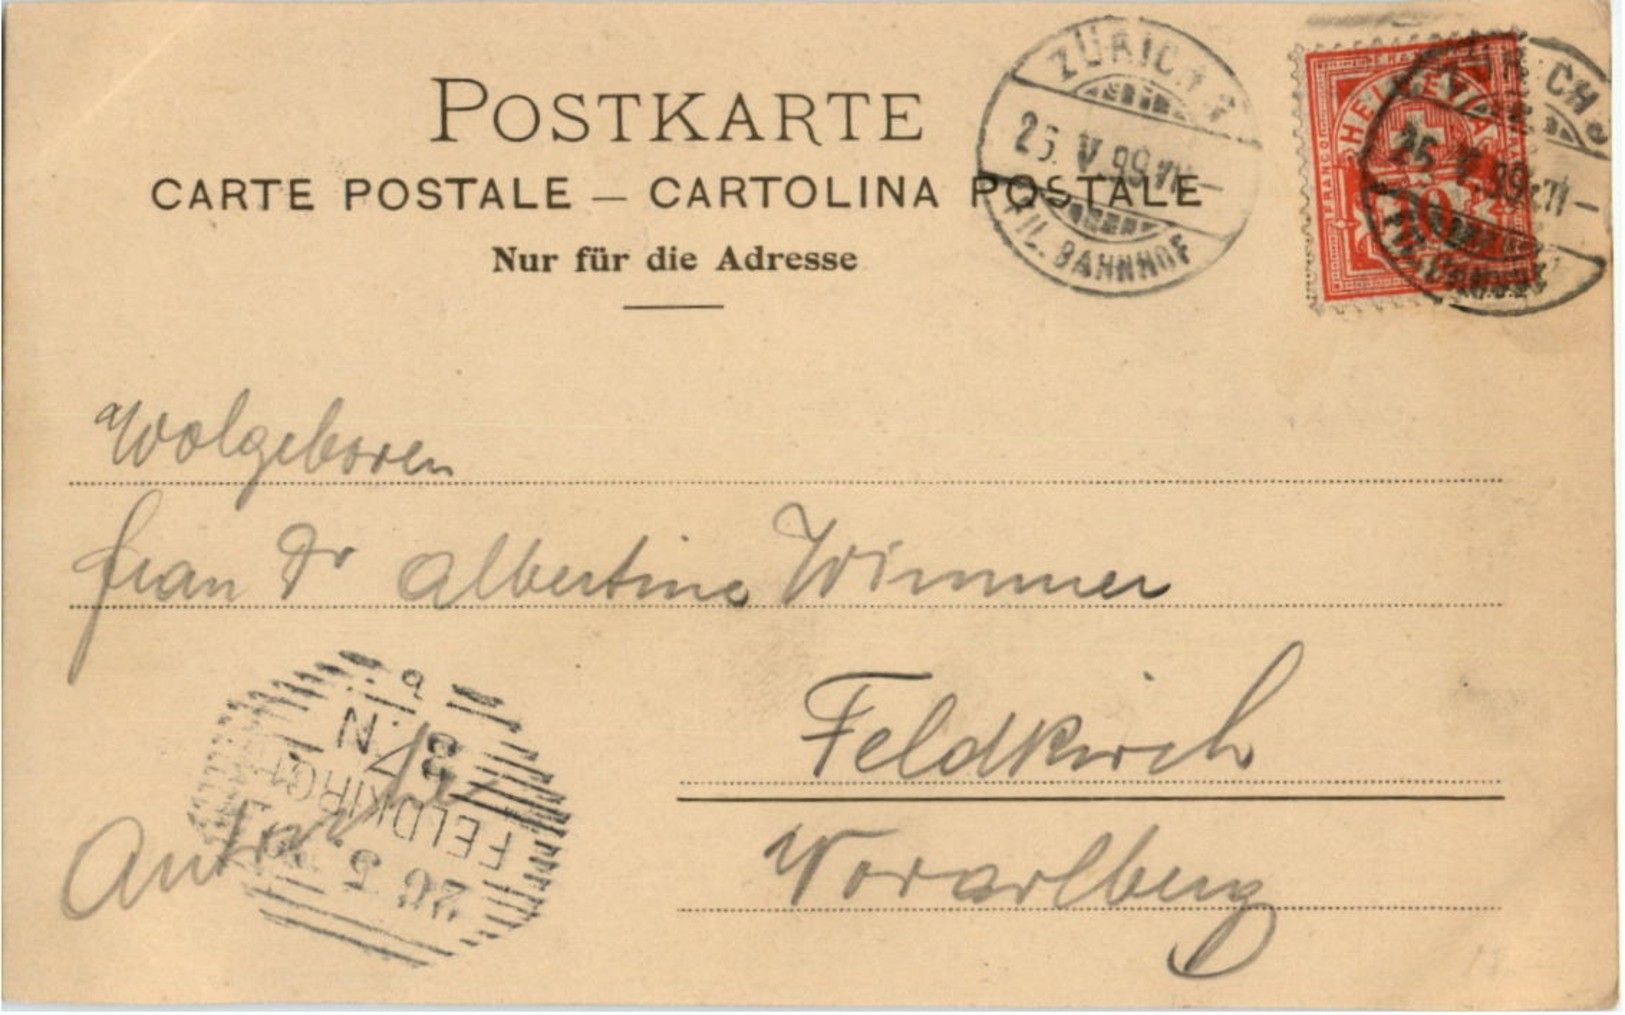 POSTKARTE
CARTE POSTALE — CARTOLINA POSTALE
Nur für die Adresse
ZÜRICH
25. V. 99. VII –
FIL. BAHNHOF
HELVETIA
FRANCO
10
25. V. 99. VII –
Wolgeboren
frau Dr Albertine Wimmer
Feldkirch
Vorarlberg
FELDKIRCH
26 5
3 N